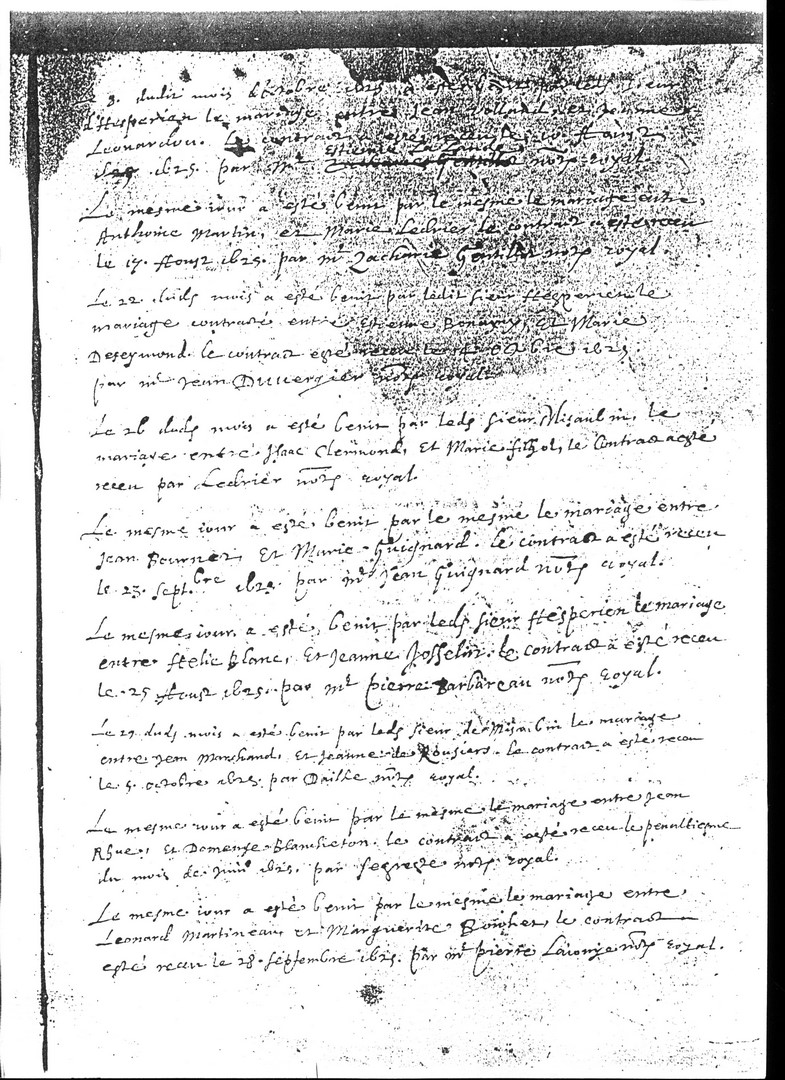 Le 9. dudit mois d'octobre 1625 a esté benit par leds sieur
d'Hesperien le mariage entre Jean Rolland, et Jemme
Leonardon. Le contract a esté receu le 10 Aoust
1625. par Mr Estienne Lalande notre royal.
Le mesme iour a esté benit par le mesme le mariage entre,
Anthoine Martin, et Marie Ledrier le contract a esté receu
le 17. Aoust 1625. par Mr Zacharie Gentillot notre royal.
Le 22 duds mois a esté benit par ledit sieur Hesperien le
mariage contracté entre Estienne et Marie
Dereymond. le contract esté receu le octobre 1625
par Mr Jean Duvergier notre royal.
Le 26 duds mois a esté benit par leds sieur Misaubin, le
mariage entre Isaac Clermond, et Marie fithol, le Contract a esté
receu par Ledrier notre royal.
Le mesme iour a esté benit par le mesme le mariage entre
Jean Bournet, Et Marie Guignard. le contract a esté receu
le 23. Sept.bre 1625. par Mr Jean Guignard notre royal.
Le mesme iour a esté benit par leds sieur Hesperien le mariage
entre Helie Blanc, Et Jeanne Josselin. le contract a esté receu
le 25 Aoust 1625. par Mr Pierre Barbareau notre royal.
Le 29 duds mois a esté benit par leds sieur de Misaubin le mariage
entre Jean Marchand, Et Jeanne de Rousiers. le contract a esté receu
le 5. octobre 1625. par Daille notre royal.
Le mesme iour a esté benit par le mesme le mariage entre Jean
Rhue, Et Domenge Blanheton. le contract a esté receu le penultiesme
du mois de Juin 1625. par Segreste notre royal.
Le mesme iour a esté benit par le mesme le mariage entre
Leonard Martineau et Marguerite Bouchet, le contract
esté receu le 28. septembre 1625. par Mr pierre notre royal.